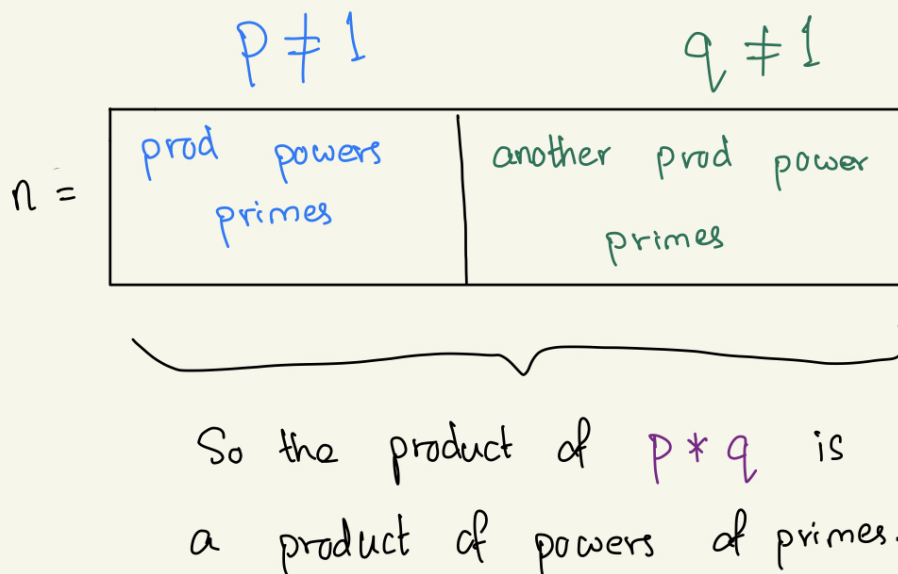 p ≠ 1 q ≠ 1
prod powers another prod power
n =
primes
primes
So the product of p * q is
a product of powers of primes.